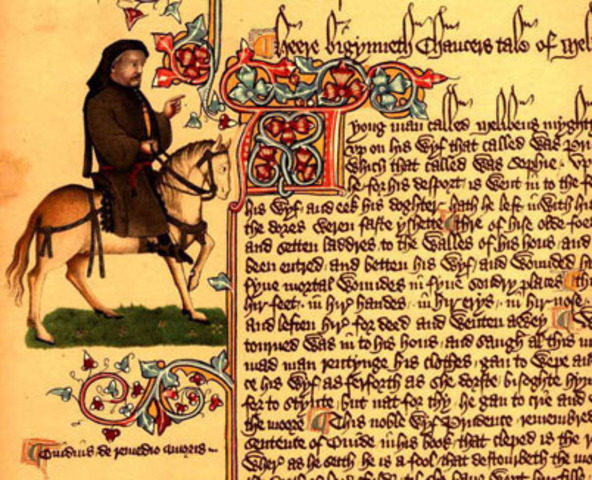 Heere bigynneth Chaucers tale of Mel
A yong man called Melibeus myght
vp on his wyf that called was Pru
Which that called was Sophie. Vp
he for his desport is went in to the fe
his wyf and eek his doghter hath he left inwith hi
the dores weren faste yshette thre of hise olde foe
and setten laddres to the walles of his hous and
been entred and betten his wyf and wounded h
fyue mortal woundes in fyue sondry places thi
hir feet in hir handes in hir erys in hir nose
and leften hir for deed and wenten awey W
tourned was in to his hous and saugh al this m
mad man rentynge his clothes gan to wepe an
ce his wyf as ferforth as she dorste bisoghte hym
for to stynte but nat for thy he gan to crie and
the moore This noble wyf Prudence remembred
sentence of Ouide in his book that cleped is the r
wher as he seith he is a fool that destourbeth the mo
Ouidius de remedio amoris